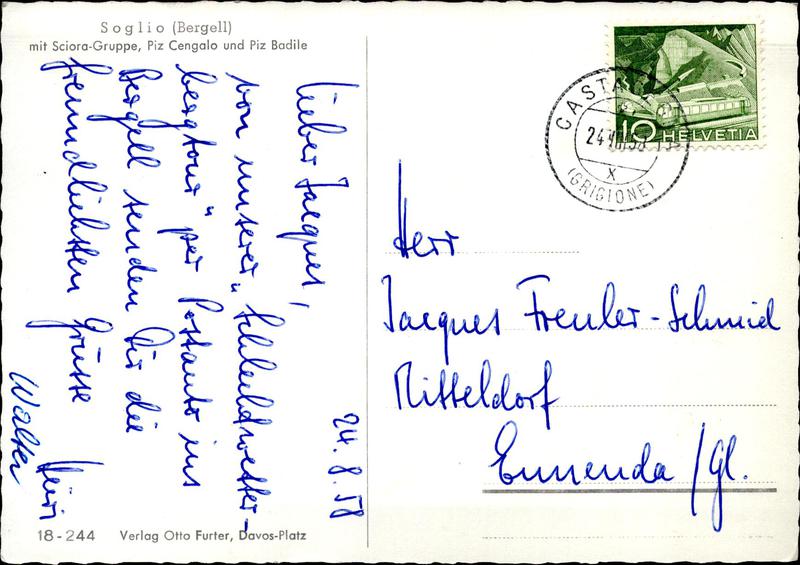 Soglio (Bergell)
mit Sciora-Gruppe, Piz Cengalo und Piz Badile
24.8.58
Lieber Jacques,
von unserer „Schlechtwetter-
bergtour" per Postauto ins
Bergell senden Dir die
freundlichsten Grüsse
Walter
Herr
Jacques Freuler-Schmid
Mitteldorf
Ennenda/Gl.
10 HELVETIA
24 VIII 58
X
(GRIGIONE)
18-244 Verlag Otto Furter, Davos-Platz